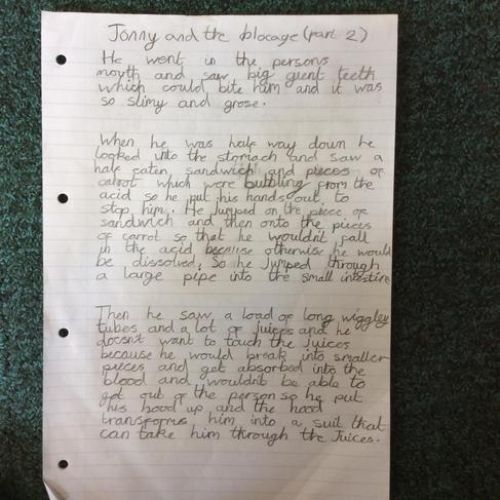 Jonny and the blocage (part 2)
He went in the persons
mouth and saw big gient teeth
which could bite him and it was
so slimy and grose.
When he was half way down he
looked into the stomach and saw a
half eaten sandwich and pieces of
carrot which were bubbling from the
acid so he put his hands out to
stop him. He Jumped on the piece of
sandwich and then onto the pieces
of carrot so that he wouldn't fall
in the acid because otherwise he would
be dissolved. So he Jumped through
a large pipe into the small intestine
Then he saw a load of long wiggley
tubes and a lot of juices and he
doesnt want to touch the Juices
because he would break into smaller
pieces and get absorbed into the
blood and wouldnt be able to
get out of the person so he put
his hood up and the hood
transforms him into a suit that
can take him through the Juices.